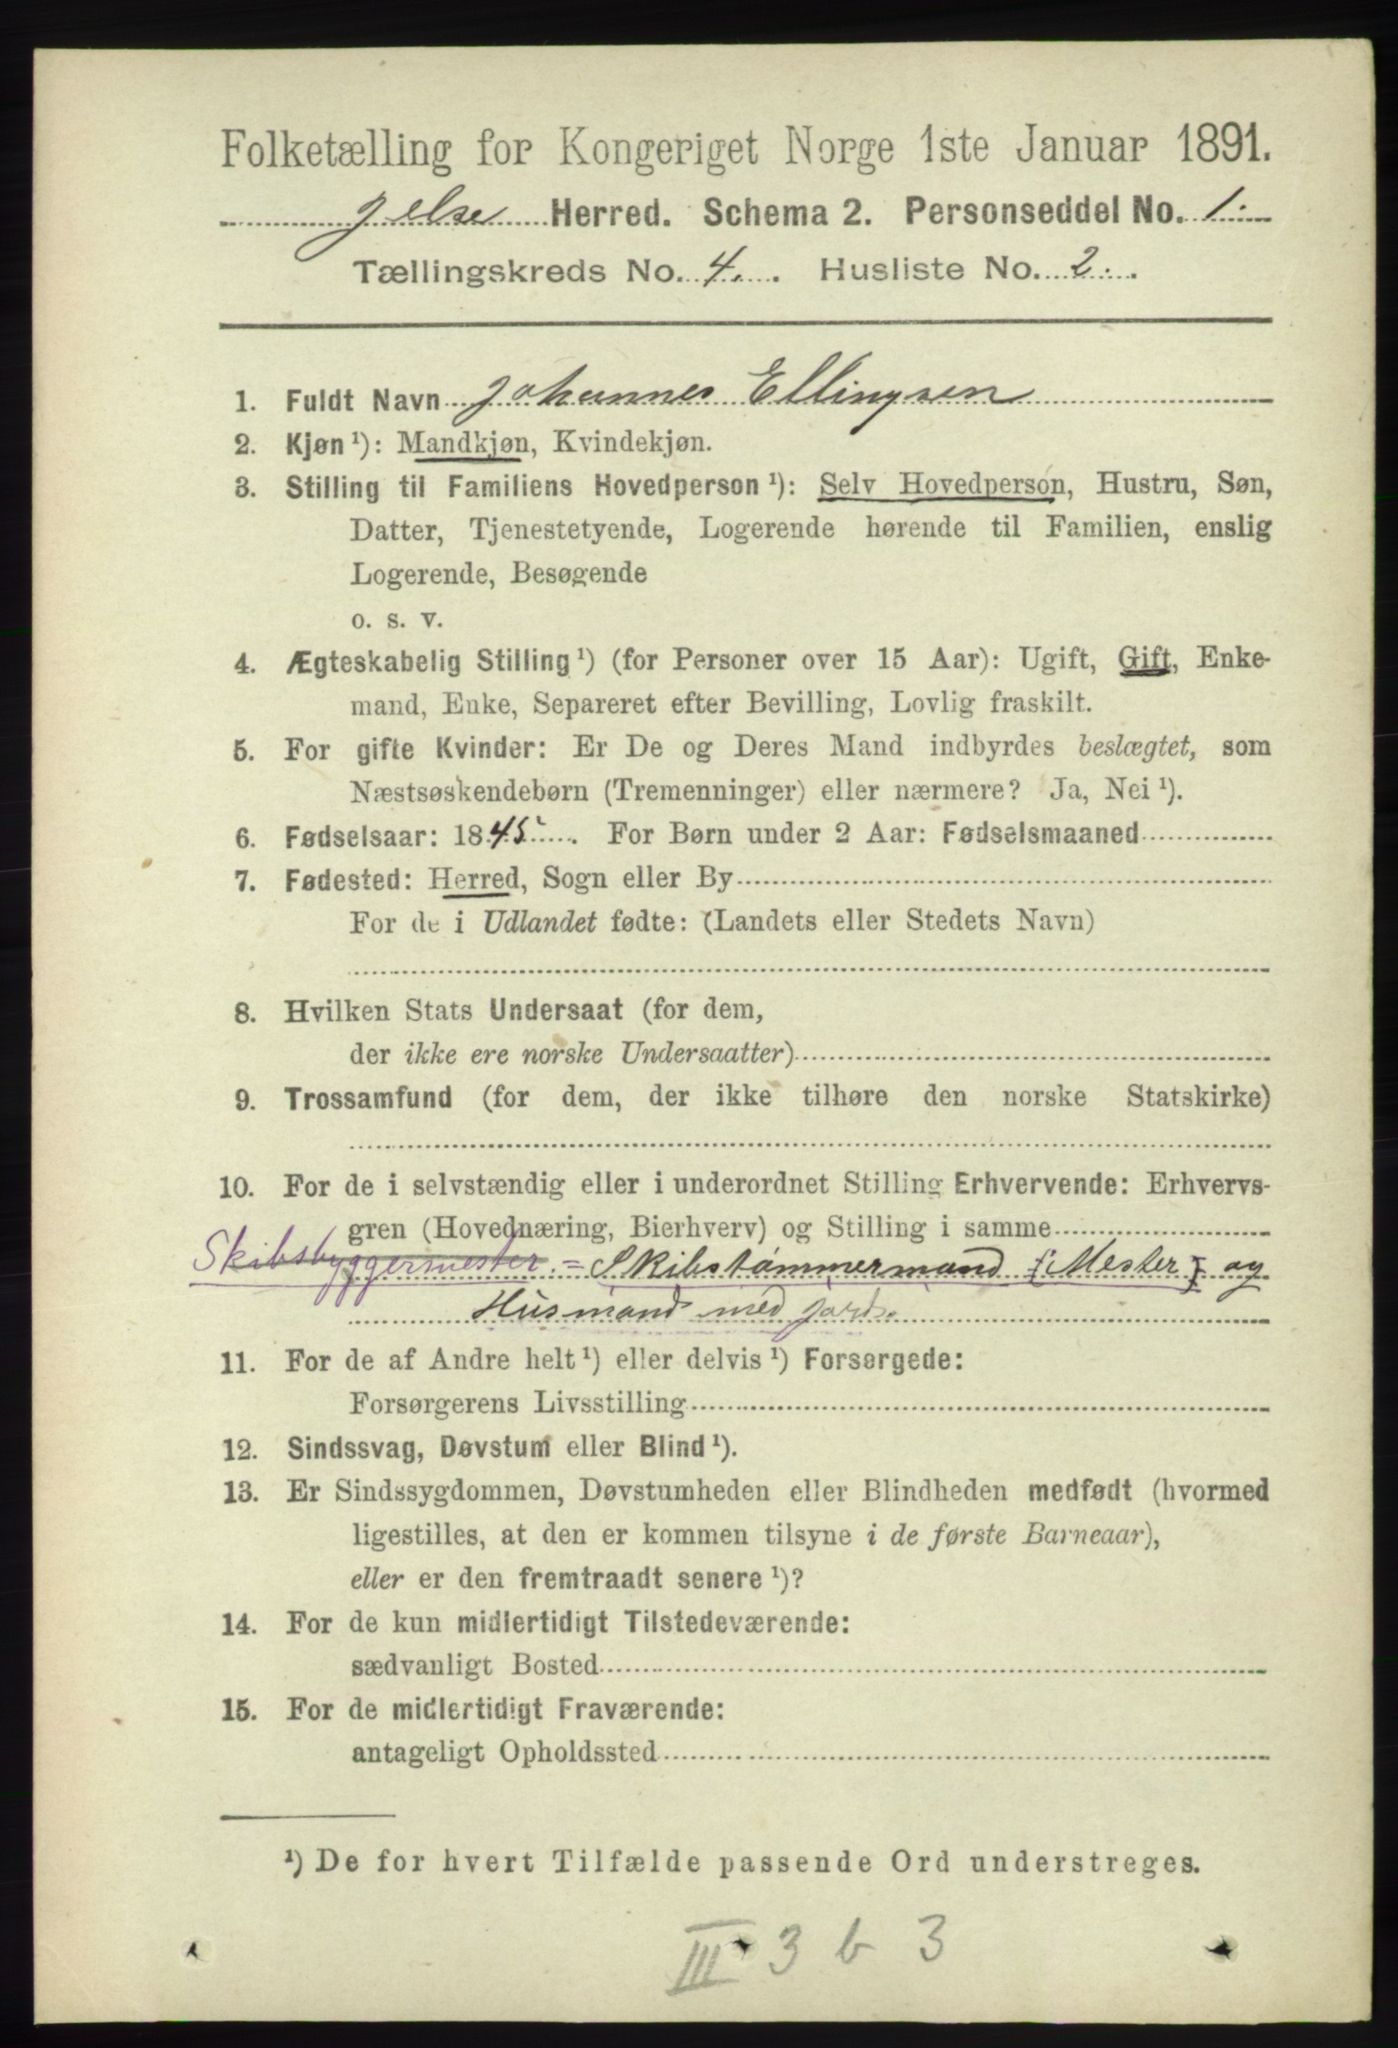 Folketælling for Kongeriget Norge 1ste Januar 1891.
Jelse Herred. Schema 2. Personseddel No. 1.
Tællingskreds No. 4. Husliste No. 2.
1. Fuldt Navn Johannes Ellingsen
2. Kjøn¹): Mandkjøn, Kvindekjøn.
3. Stilling til Familiens Hovedperson¹): Selv Hovedperson, Hustru, Søn,
Datter, Tjenestetyende, Logerende hørende til Familien, enslig
Logerende, Besøgende
o. s. v.
4. Ægteskabelig Stilling¹) (for Personer over 15 Aar): Ugift, Gift, Enke-
mand, Enke, Separeret efter Bevilling, Lovlig fraskilt.
5. For gifte Kvinder: Er De og Deres Mand indbyrdes beslægtet, som
Næstsøskendebørn (Tremenninger) eller nærmere? Ja, Nei¹).
6. Fødselsaar: 1845. For Børn under 2 Aar: Fødselsmaaned
7. Fødested: Herred, Sogn eller By
For de i Udlandet fødte: (Landets eller Stedets Navn)
8. Hvilken Stats Undersaat (for dem,
der ikke ere norske Undersaatter)
9. Trossamfund (for dem, der ikke tilhøre den norske Statskirke)
10. For de i selvstændig eller i underordnet Stilling Erhvervende: Erhvervs-
gren (Hovednæring, Bierhverv) og Stilling i samme
Skibsbyggermester = Skibstømmermand (Mester) og
Husmand med jord.
11. For de af Andre helt¹) eller delvis¹) Forsørgede:
Forsørgerens Livsstilling
12. Sindssvag, Døvstum eller Blind¹).
13. Er Sindssygdommen, Døvstumheden eller Blindheden medfødt (hvormed
ligestilles, at den er kommen tilsyne i de første Barneaar),
eller er den fremtraadt senere¹)?
14. For de kun midlertidigt Tilstedeværende:
sædvanligt Bosted
15. For de midlertidigt Fraværende:
antageligt Opholdssted
¹) De for hvert Tilfælde passende Ord understreges.
III 3 b 3